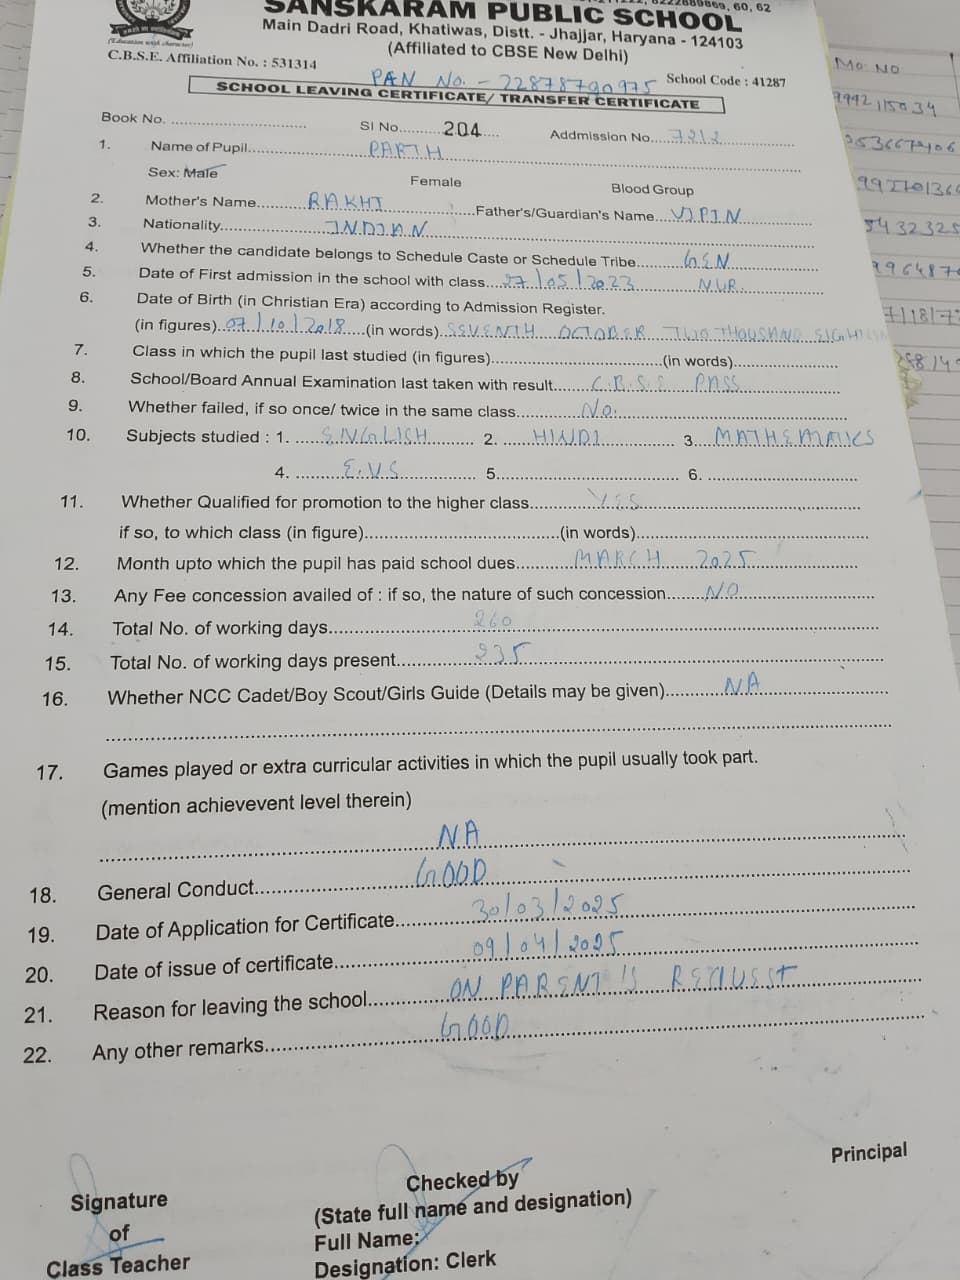 8222889869, 60, 62
SANSKARAM PUBLIC SCHOOL
Main Dadri Road, Khatiwas, Distt. - Jhajjar, Haryana - 124103
(Affiliated to CBSE New Delhi)
(Education with character)
C.B.S.E. Affiliation No. : 531314
School Code : 41287
PAN No. - 22878790975
SCHOOL LEAVING CERTIFICATE/ TRANSFER CERTIFICATE
Book No. Sl No. 204 Addmission No. 7212
1. Name of Pupil PARTH
Sex: Male Female Blood Group
2. Mother's Name RAKHI Father's/Guardian's Name VIPIN
3. Nationality INDIAN
4. Whether the candidate belongs to Schedule Caste or Schedule Tribe GEN
5. Date of First admission in the school with class 27/05/2023 NUR.
6. Date of Birth (in Christian Era) according to Admission Register.
(in figures) 07/10/2018 (in words) SEVENTH OCTOBER TWO THOUSAND EIGHTEEN
7. Class in which the pupil last studied (in figures) (in words)
8. School/Board Annual Examination last taken with result C.B.S.E PASS
9. Whether failed, if so once/ twice in the same class No.
10. Subjects studied : 1. ENGLISH 2. HINDI 3. MATHEMATICS
4. E.V.S 5. 6.
11. Whether Qualified for promotion to the higher class YES
if so, to which class (in figure) (in words)
12. Month upto which the pupil has paid school dues MARCH 2025
13. Any Fee concession availed of : if so, the nature of such concession NO
14. Total No. of working days 260
15. Total No. of working days present 235
16. Whether NCC Cadet/Boy Scout/Girls Guide (Details may be given) NA
17. Games played or extra curricular activities in which the pupil usually took part.
(mention achievevent level therein)
NA
18. General Conduct GOOD
19. Date of Application for Certificate 30/03/2025
20. Date of issue of certificate 09/04/2025
21. Reason for leaving the school ON PARENT'S REQUEST
22. Any other remarks GOOD
Signature
of
Class Teacher
Checked by
(State full name and designation)
Full Name:
Designation: Clerk
Principal
Mo. NO
9992115034